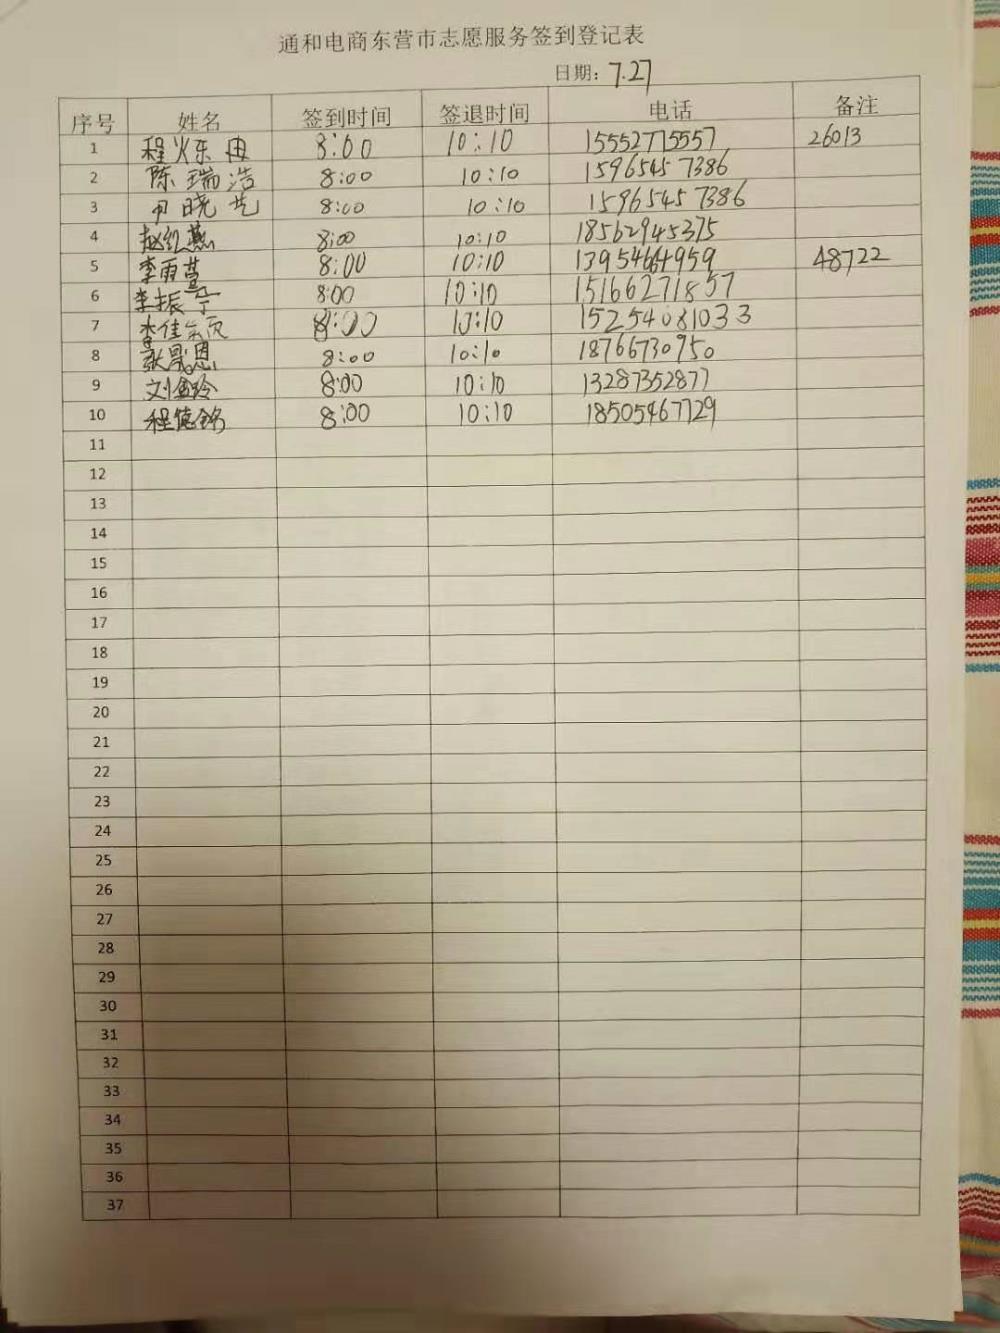 通和电商东营市志愿服务签到登记表
日期：7.27
序号 姓名 签到时间 签退时间 电话 备注
1 程烁冉 8:00 10:10 15552715557 26013
2 陈瑞浩 8:00 10:10 15965457386
3 尹晓艺 8:00 10:10 15965457386
4 赵红燕 8:00 10:10 18562945375
5 李雨萱 8:00 10:10 13954664959 48722
6 李振宁 8:00 10:10 15166271857
7 李佳 8:00 10:10 15254081033
8 8:00 10:10 18766730950
9 刘金玲 8:00 10:10 13287352877
10 程德铭 8:00 10:10 18505467729
11
12
13
14
15
16
17
18
19
20
21
22
23
24
25
26
27
28
29
30
31
32
33
34
35
36
37